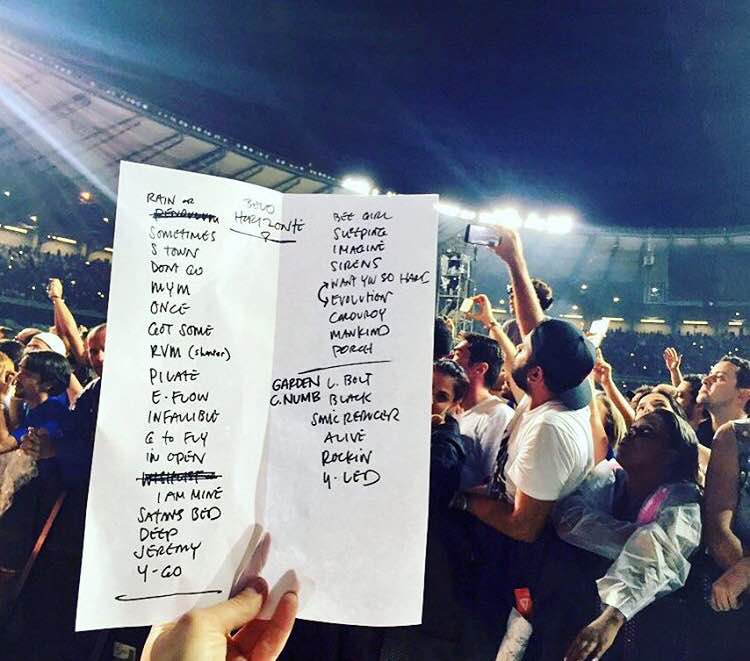 RAIN OR
PENDULUM
SOMETIMES
S TOWN
DONT GO
MYM
ONCE
GOT SOME
RVM (SHAVER)
PILATE
E-FLOW
INFALLIBLE
G to FLY
IN OPEN
I AM MINE
SATANS BED
DEEP
JEREMY
Y-GO
BELO
HORIZONTE
BEE GIRL
SLEEPING
IMAGINE
SIRENS
WANT YOU SO HARD
EVOLUTION
CORDUROY
MANKIND
PORCH
GARDEN L. BOLT
C. NUMB BLACK
SONIC REDUCER
ALIVE
ROCKIN
Y-LED